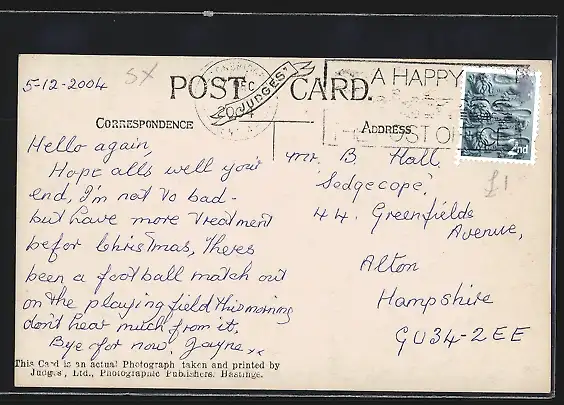 5-12-2004
SX
POST CARD.
JUDGES'
DEC
20
A HAPPY
POST OFF
2nd
CORRESPONDENCE
ADDRESS
£1
Hello again,
Hope all's well your
end, I'm not to bad -
but have more treatment
befor Christmas, Theres
been a football match out
on the playing field this morning
don't hear much from it,
Bye for now. Jayne xx
Mr. B Hall,
'Sedgecope',
44. Greenfields
Avenue,
Alton
Hampshire
GU34-2EE
This Card is an actual Photograph taken and printed by
Judges', Ltd., Photographic Publishers, Hastings.